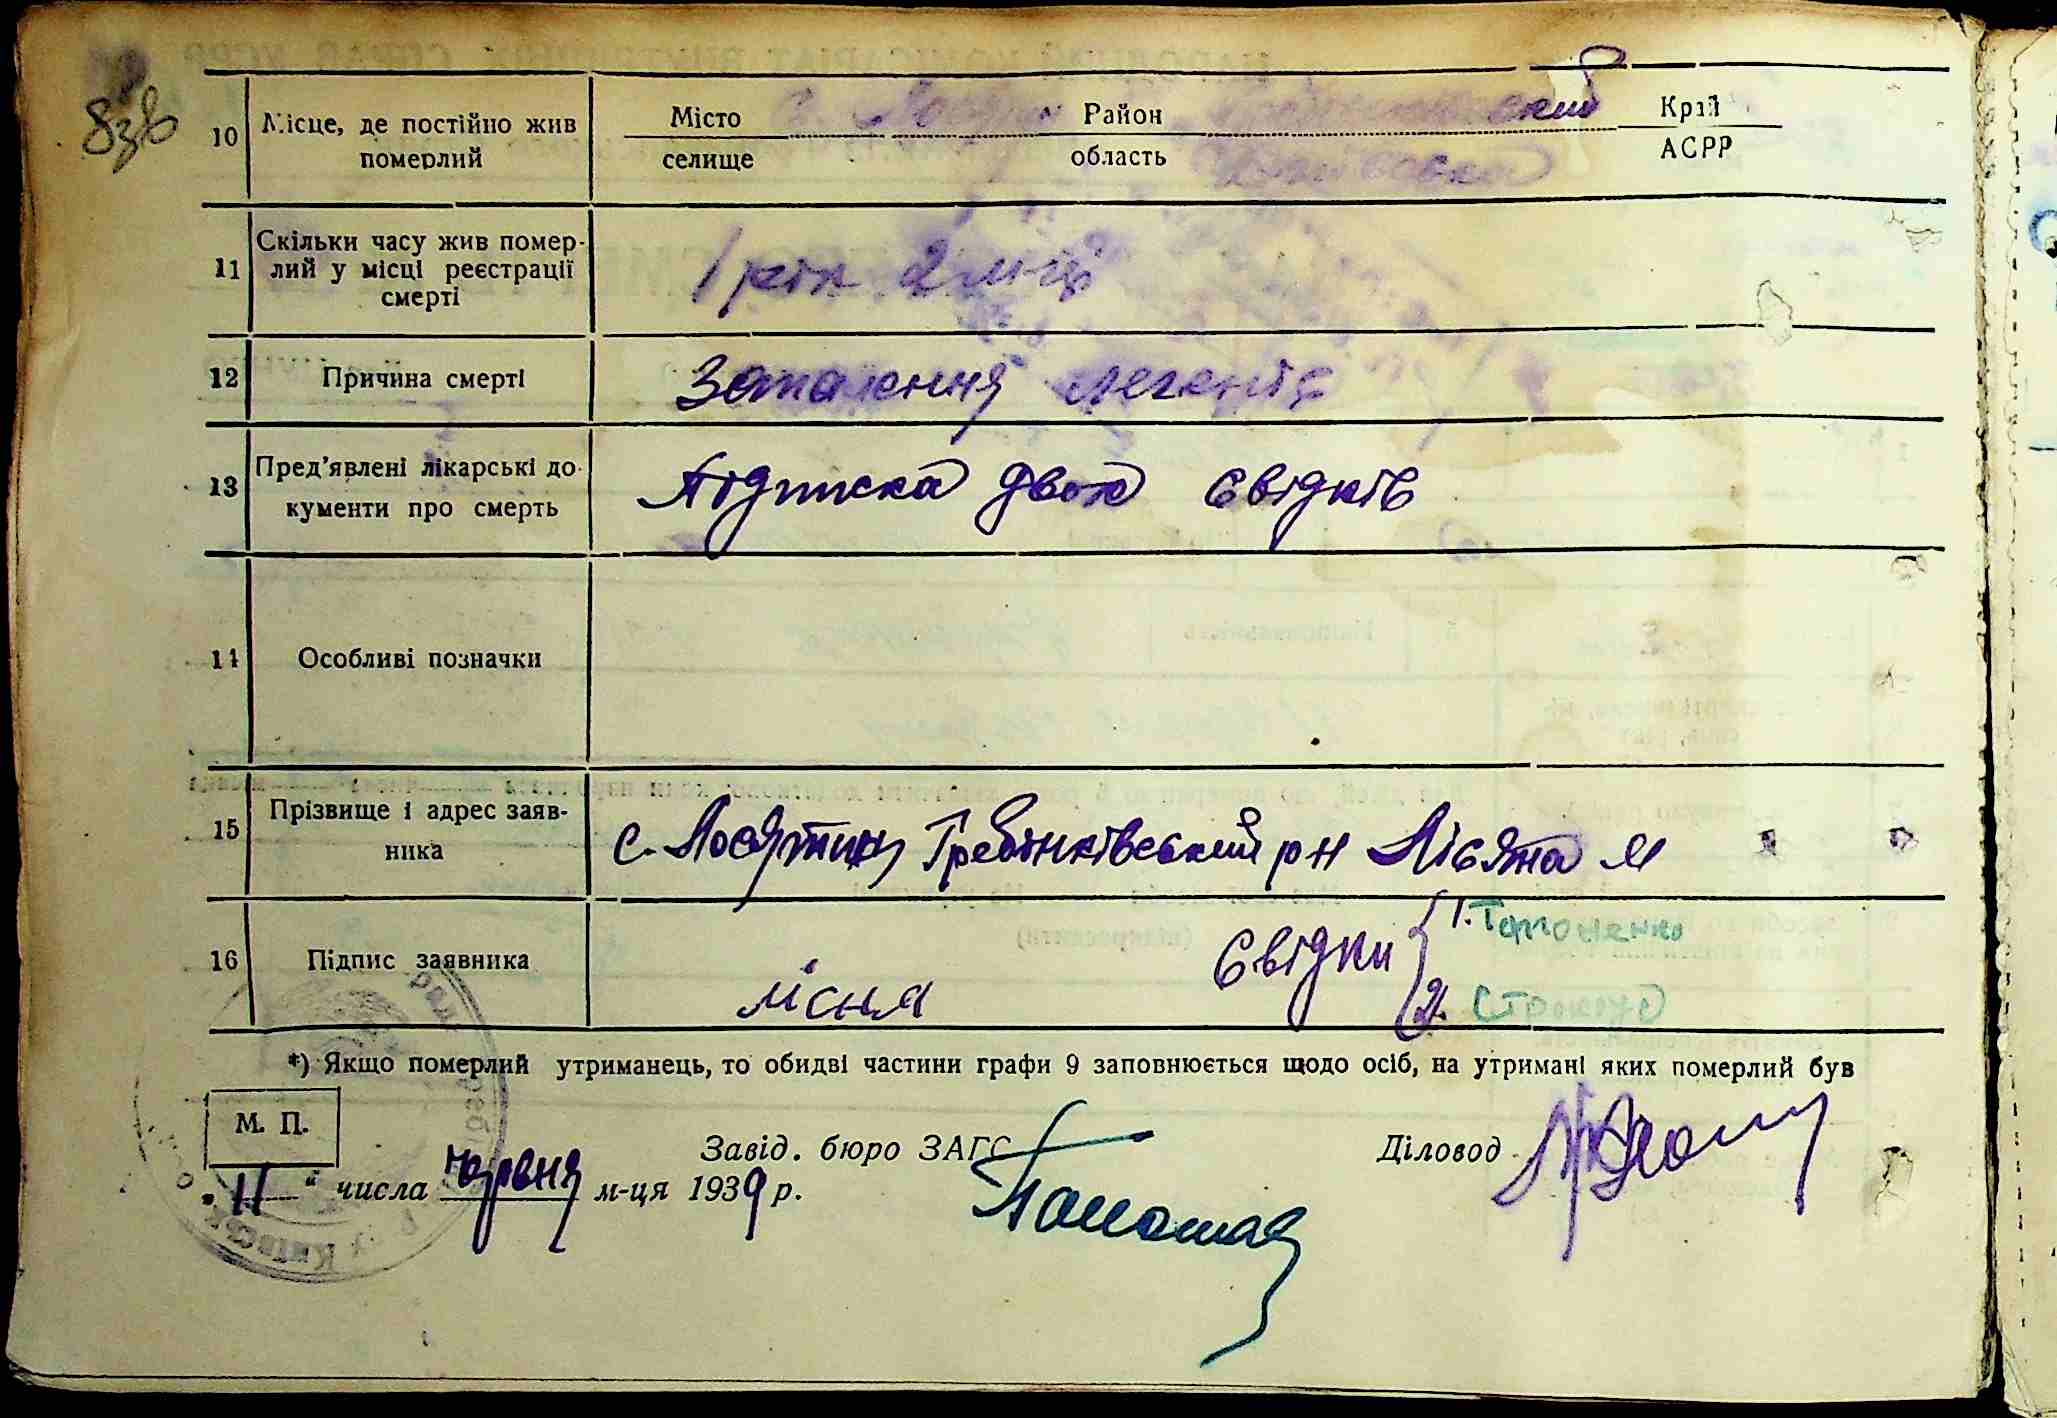 8зв
10 Місце, де постійно жив померлий
Місто с. Район ский Край
селище область Київська АСРР
11 Скільки часу жив помер-
лий у місці реєстрації
смерті
1 рік 2 м-ці
12 Причина смерті Запалення легенів
13 Пред'явлені лікарські до-
кументи про смерть
Підписка двох свідків
14 Особливі позначки
15 Прізвище і адрес заяв-
ника
с. Лосятин Гребінківський рн Лісяна М
16 Підпис заявника
лісня Свідки 1.
2.
*) Якщо померлий утриманець, то обидві частини графи 9 заповнюється щодо осіб, на утримані яких померлий був
М. П.
Завід. бюро ЗАГС Діловод
„11“ числа червня м-ця 1939 р.